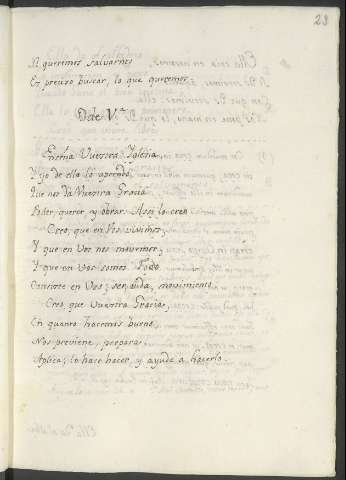 23
Si queremos salvarnos
Es preciso buscar, lo que queremos.
Oda V.ª
Enseña Vuestra Iglesia
Y yo de ella lo aprendo,
Que nos da Vuestra Gracia
Poder, querer, y obrar. Assi lo creo.
Creo, que en Vos vivimos,
Y que en Vos nos movemos,
Y que en Vos somos. Todo
Consiste en Vos; ser, vida, movimiento.
Creo, que Vuestra Gracia,
En quanto hacemos bueno,
Nos previene, prepara,
Aplica, lo hace hacer, y ayuda a hacerlo.